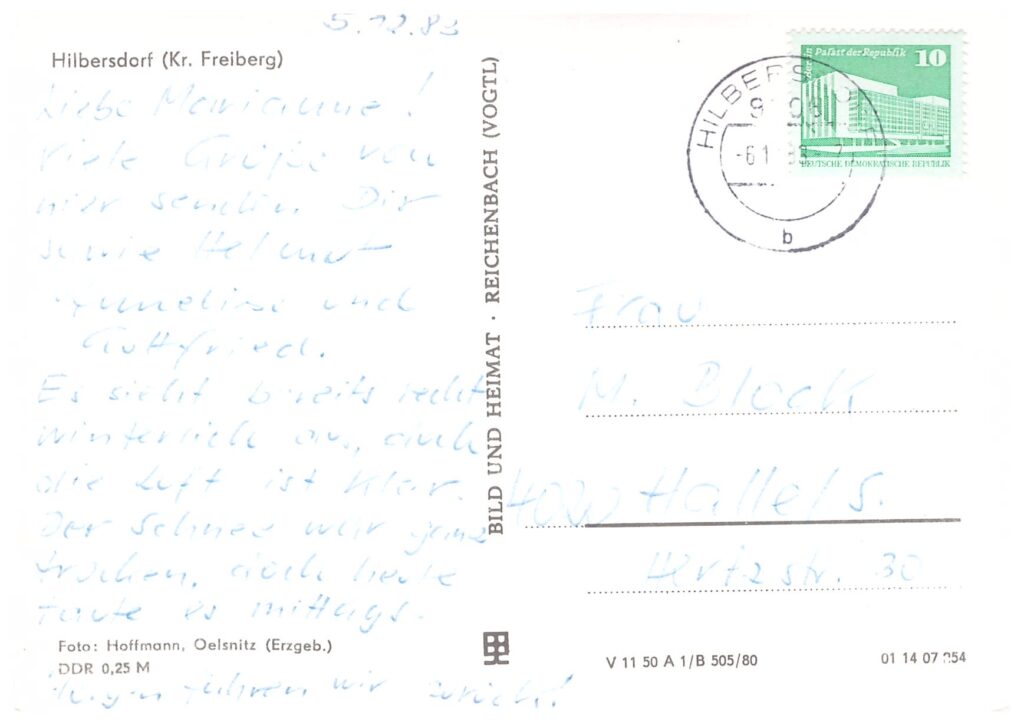 5.12.83
Hilbersdorf (Kr. Freiberg)
Liebe Marianne!
Viele Grüße von
hier senden Dir
sowie Helmut
Annelise und
Gottfried.
Es sieht bereits recht
winterlich aus, auch
die Luft ist klar.
Der Schnee war ganz
trocken, doch heute
taute es mittags.
Foto: Hoffmann, Oelsnitz (Erzgeb.)
DDR 0,25 M
führen wir zurück!
BILD UND HEIMAT · REICHENBACH (VOGTL)
Berlin Palast der Republik 10
DEUTSCHE DEMOKRATISCHE REPUBLIK
HILBERSDORF
b
Frau
M. Block
Halle/S.
Hertzstr. 30
V 11 50 A 1/B 505/80
01 14 07